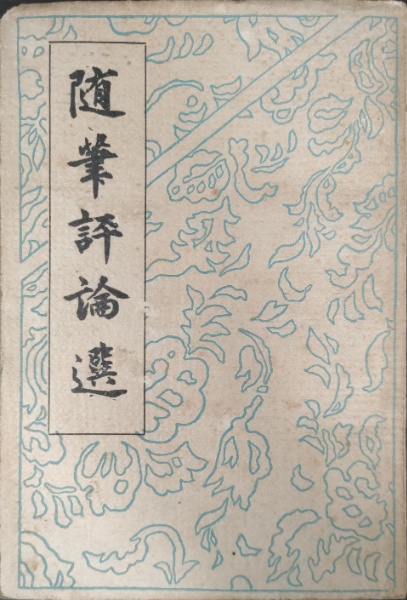 随筆評論選